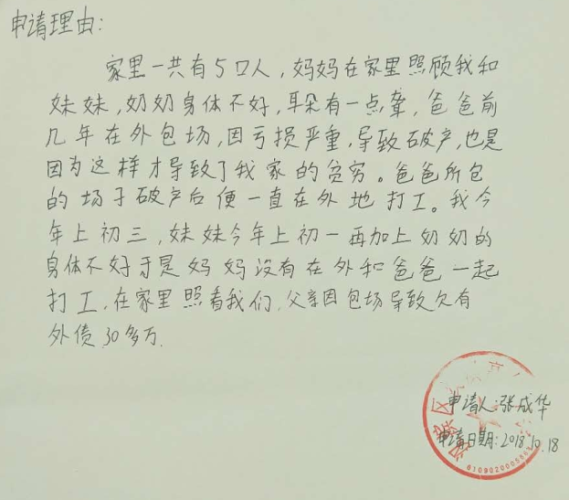 申请理由：
家里一共有5口人，妈妈在家里照顾我和
妹妹，奶奶身体不好，耳朵有一点聋，爸爸前
几年在外包场，因亏损严重，导致破产，也是
因为这样才导致了我家的贫穷。爸爸所包
的场子破产后便一直在外地打工。我今
年上初三，妹妹今年上初一再加上奶奶的
身体不好于是妈妈没有在外和爸爸一起
打工，在家里照看我们，父亲因包场导致欠有
外债30多万.
申请人：张成华
申请日期：2018.10.18